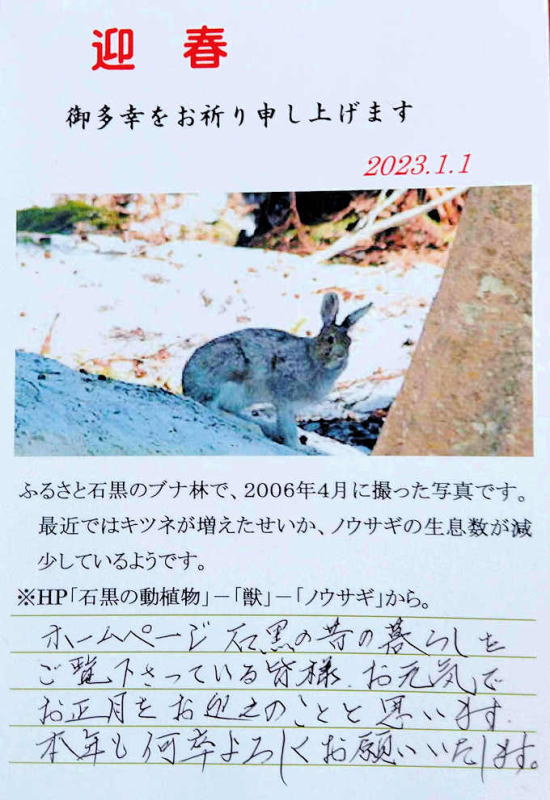 迎春
御多幸をお祈り申し上げます
2023.1.1
ふるさと石黒のブナ林で、2006年4月に撮った写真です。
最近ではキツネが増えたせいか、ノウサギの生息数が減
少しているようです。
※HP「石黒の動植物」－「獣」－「ノウサギ」から。
ホームページ 石黒の昔の暮らしを
ご覧下さっている皆様、お元気で
お正月をお迎えのことと思います。
本年も何卒よろしくお願いいたします。